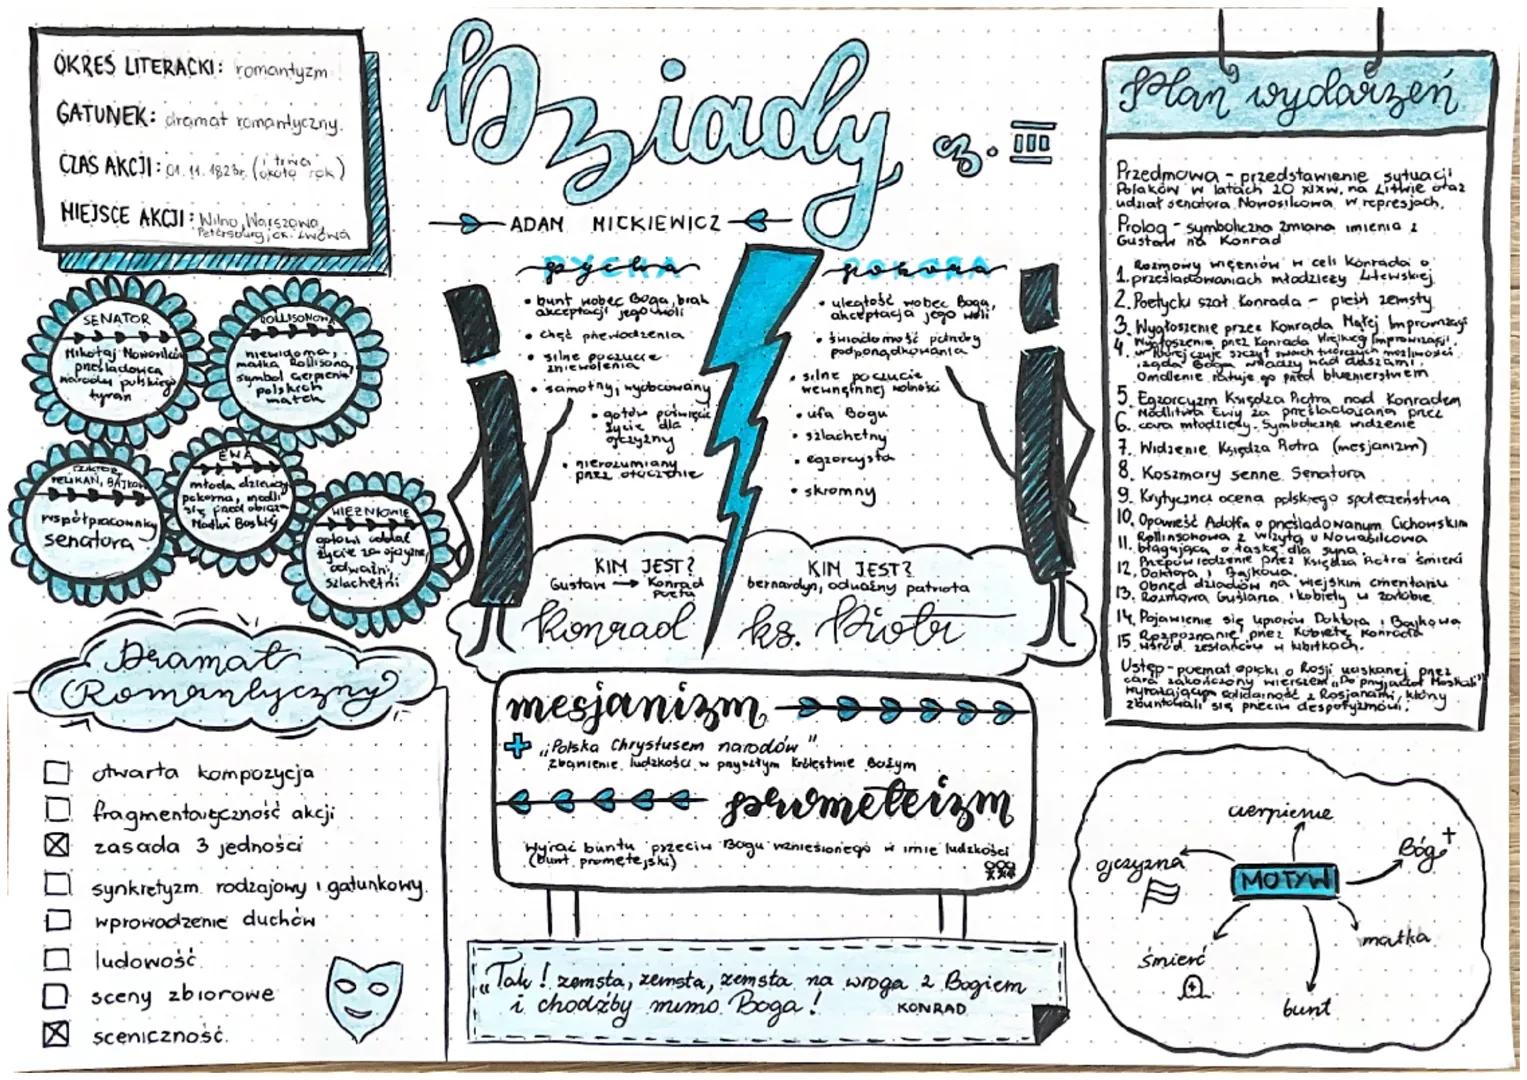 OKRES LITERACKI: romantyzm
GATUNEK: dramat romantyczny.
CZAS AKCJI: 01.11.1823r. (i trwa
około rok)
MIEJSCE AKCJI: Wilno, Warszawa,
Petersburg, ok. Lwowa
Dziady cz. III
ADAM MICKIEWICZ
SENATOR
Mikołaj Nowosilcow
prześladowca
narodu polskiego
tyran
ROLLISONOWA
niewidoma,
matka Rollisona,
symbol cierpienia
polskich
matek
DOKTOR,
PELIKAN, BAJKOW
współpracownicy
senatora
EWA
młoda dziewczy
pokorna, modli
się przed obrazem
Matki Boskiej
WIĘŹNIOWIE
gotowi oddać
życie za ojczyznę,
odważni,
szlachetni
Dramat
Romantyczny
otwarta kompozycja
fragmentaryczność akcji
zasada 3 jedności
synkretyzm rodzajowy i gatunkowy.
wprowadzenie duchów
ludowość
sceny zbiorowe
sceniczność.
PYCHA
• bunt wobec Boga, brak
akceptacji jego woli
• chęć przewodzenia
• silne poczucie
zniewolenia
• samotny, wyobcowany
• gotów poświęcić
życie dla
ojczyzny
• nierozumiany
przez otoczenie
POKORA
• uległość wobec Boga,
akceptacja jego woli
• świadomość potrzeby
podporządkowania
• silne poczucie
wewnętrznej wolności
• ufa Bogu
• szlachetny
• egzorcysta
• skromny
KIM JEST?
Gustaw → Konrad
poeta
Konrad
KIM JEST?
bernardyn, odważny patriota
ks. Piotr
mesjanizm
"Polska Chrystusem narodów"
zbawienie ludzkości w przyszłym Królestwie Bożym
prometeizm
Wyraz buntu przeciw Bogu wzniesionego w imię ludzkości
(bunt prometejski)
"Tak! zemsta, zemsta, zemsta na wroga z Bogiem
i chodźby mimo Boga!
KONRAD
Plan wydarzeń
Przedmowa - przedstawienie sytuacji
Polaków w latach 20 XIXw. na Litwie oraz
udział senatora Nowosilcowa w represjach.
Prolog - symboliczna zmiana imienia z
Gustaw na Konrad
1. Rozmowy więźniów w celi Konrada o
prześladowaniach młodzieży Litewskiej
2. Poetycki szał Konrada - pieśń zemsty
3. Wygłoszenie przez Konrada Małej Improwizacji
4. Wygłoszenie przez Konrada Wielkiej Improwizacji,
w której czuje szczyt swoich twórczych możliwości
i żąda Boga władzy nad duszami.
Omdlenie ratuje go przed bluźnierstwem
5. Egzorcyzm Księdza Piotra nad Konradem
6. Modlitwa Ewy za prześladowaną przez
cara młodzieży. Symboliczne widzenie
7. Widzenie Księdza Piotra (mesjanizm)
8. Koszmary senne Senatora
9. Krytyczna ocena polskiego społeczeństwa
10. Opowieść Adolfa o prześladowanym Cichowskim
11. Rollinsonowa z wizytą u Nowosilcowa
błagająca o łaskę dla syna
12. Przepowiedzenie przez Księdza Piotra śmierci
Doktora i Bajkowa.
13. Obrzęd dziadów na wiejskim cmentarzu
Rozmowa Guślarza i kobiety w żałobie
14. Pojawienie się upiorów Doktora i Bajkowa
15. Rozpoznanie przez Kobietę Konrada
wśród zesłańców w kibitkach.
Ustęp - poemat epicki o Rosji uciskanej przez
cara zakończony wierszem "Do przyjaciół Moskali"
wyrażającym solidarność z Rosjanami, którzy
zbuntowali się przeciw despotyzmowi.
MOTYW
cierpienie
Bóg
ojczyzna
matka
śmierć
bunt